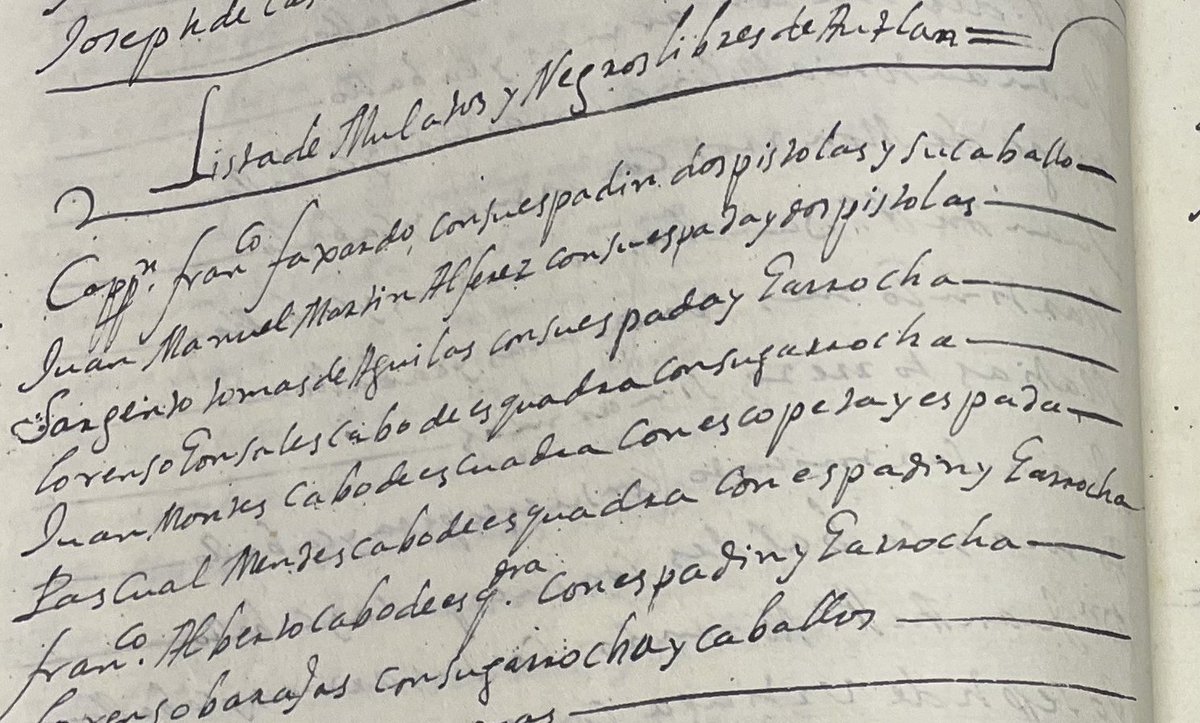 Joseph de
Lista de Mulatos y Negros libres de Autlan
Capp.n fran.co faxardo, con su espadin dos pistolas y su caballo
Juan Manuel Martin Alferez con su espada y dos pistolas
Sargento tomas de Aguilas con su espada y Garrocha
lorenso Gonsales cabo de esquadra con su garrocha
Juan Montes cabo de escuadra con escopeta y espada
Pascual Mendes cabo de esquadra con espadin y Garrocha
fran.co Alberto cabo de esq.dra con espadin y Garrocha
lorenso barajas con su garrocha y caballos